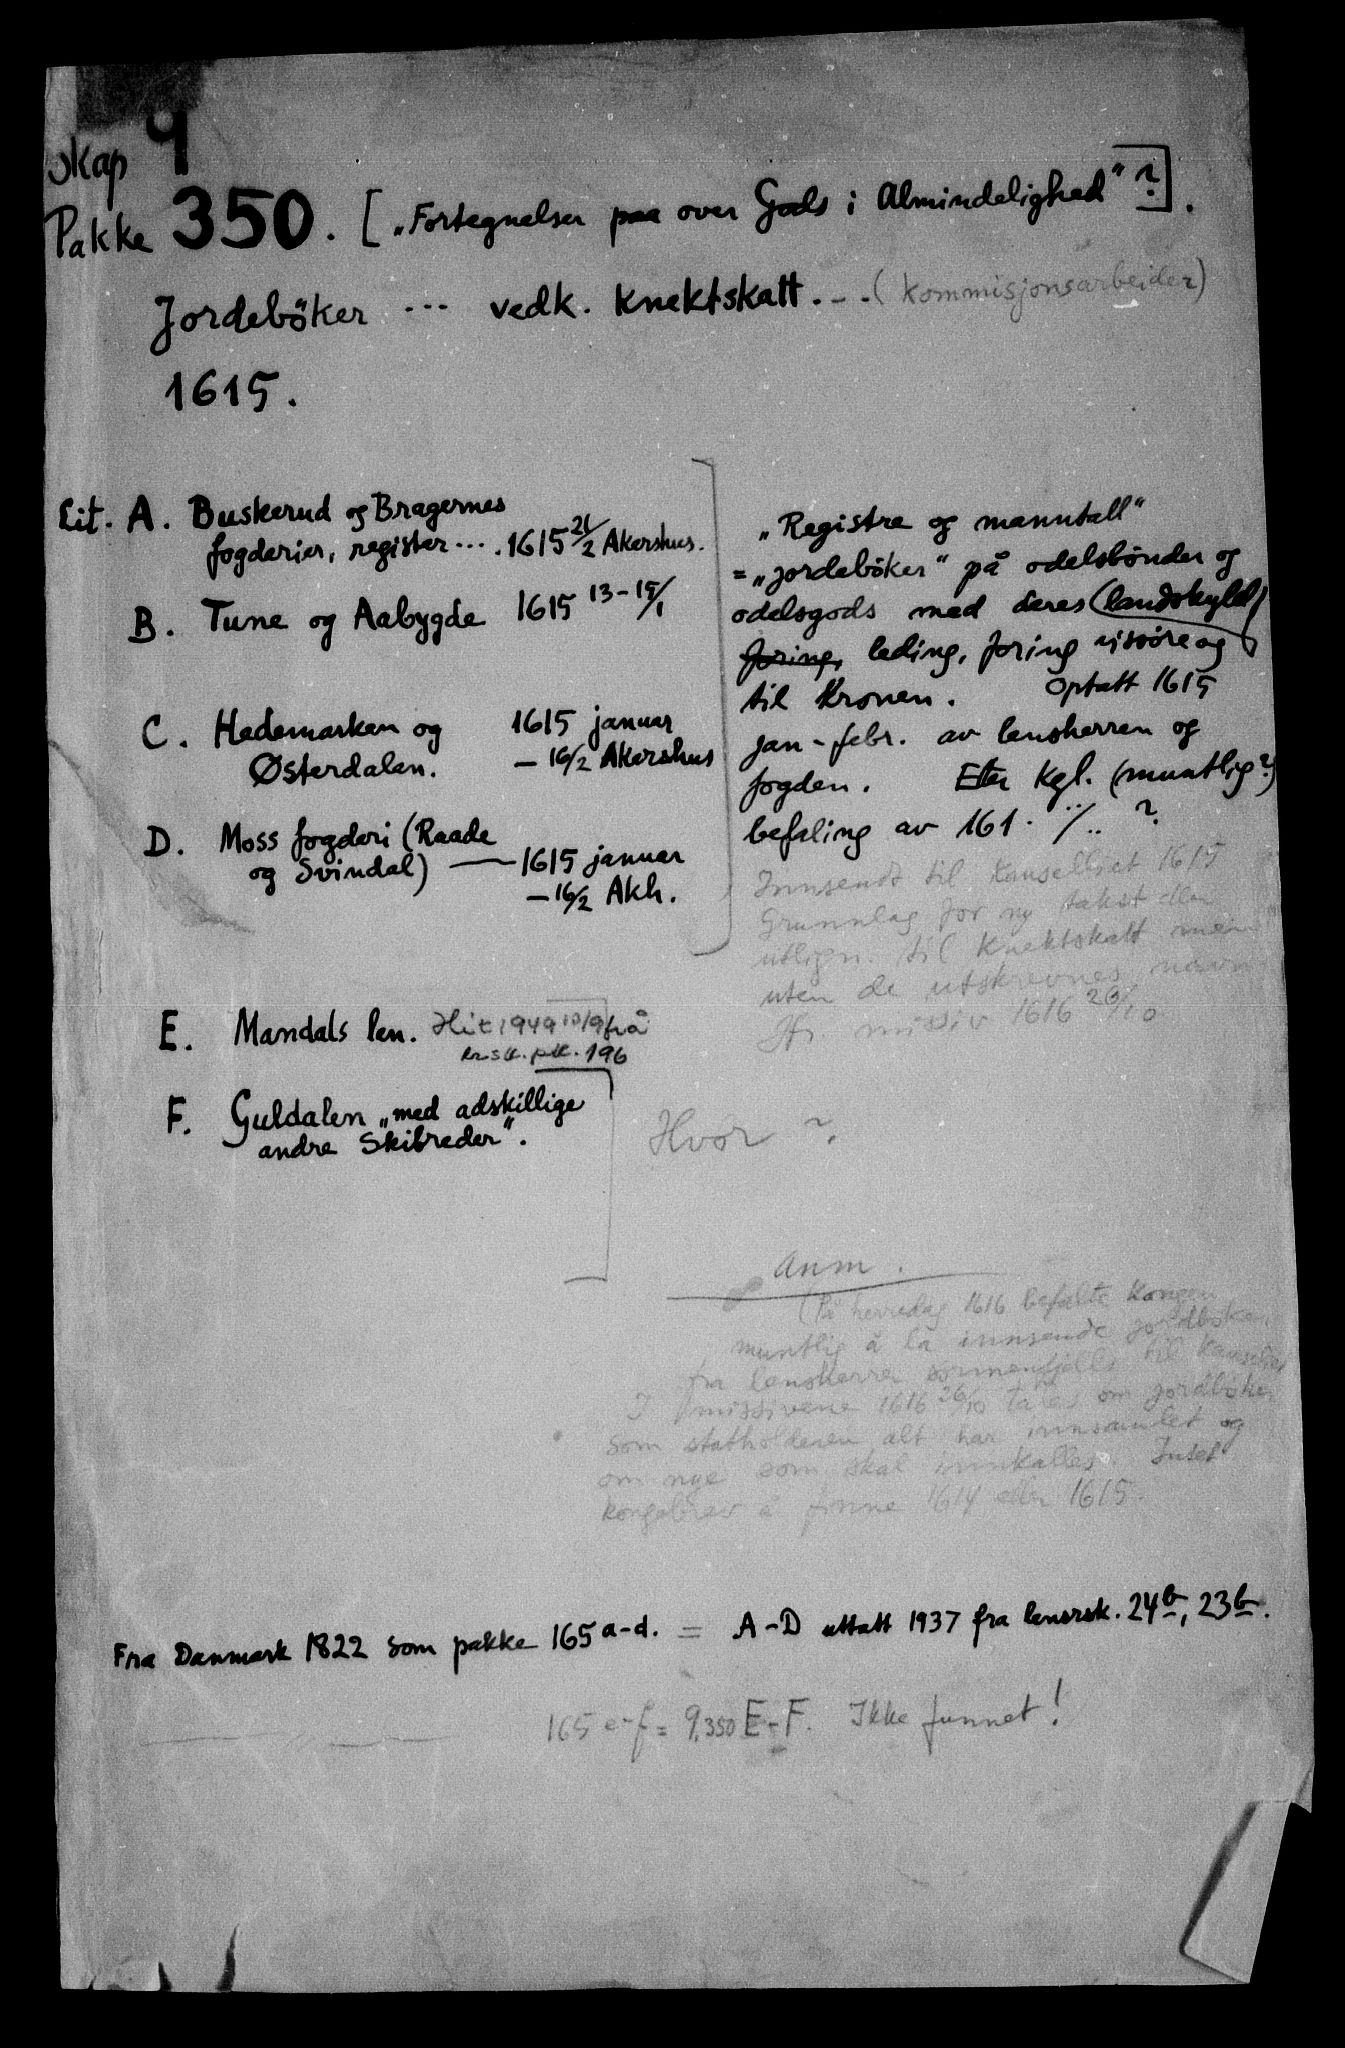 Skap 9
Pakke 350. [„Fortegnelser paa over Gods i Almindelighed" ?].
Jordeböker ... vedk. Knektskatt. - . (kommisjonsarbeider)
1615.
Lit. A. Buskerud og Bragernes
fogderier, register .... 1615 21/2 Akershus.
B. Tune og Aabygde 1615 13-15/1
C. Hedemarken og 1615 januar
Østerdalen. - 16/2 Akershus
D. Moss fogderi (Raade
og Svindal) — 1615 januar
- 16/2 Akh.
„Registre og manntall"
= „jordebøker" på odelsbønder og
odelsgods med deres (landskyld)
foring, leding, foring visøre og
til Kronen. Optatt 1615
jan - febr. av lensherren og
fogden. Etter Kgl. (muntlig?)
befaling av 161. ../.. ?
Innsendt til kanselliet 1615
Grunnlag for ny takst eller
utlign. til Knektskatt men
uten de utskrevnes navn
Jfr. missiv 1616 26/10
E. Mandals len. Hit 1949 10/9 frå
lnsk. pk. 196
F. Guldalen „med adskillige
andre Skibreder".
Hvor ?
Anm.
(På herredag 1616 befalte Kongen
muntlig å la innsende jordbøker
fra lensherrer sønnenfjells til kanselliet
I missivene 1616 26/10 tales om jordbøker
som statholderen alt har innsamlet og
om nye som skal innkalles. Intet
kongebrev å finne 1614 eller 1615.
Fra Danmark 1822 som pakke 165 a-d. = A-D uttatt 1937 fra lensrsk. 24b, 23b.
— „ — 165 e-f = 9.350 E-F. Ikke funnet!